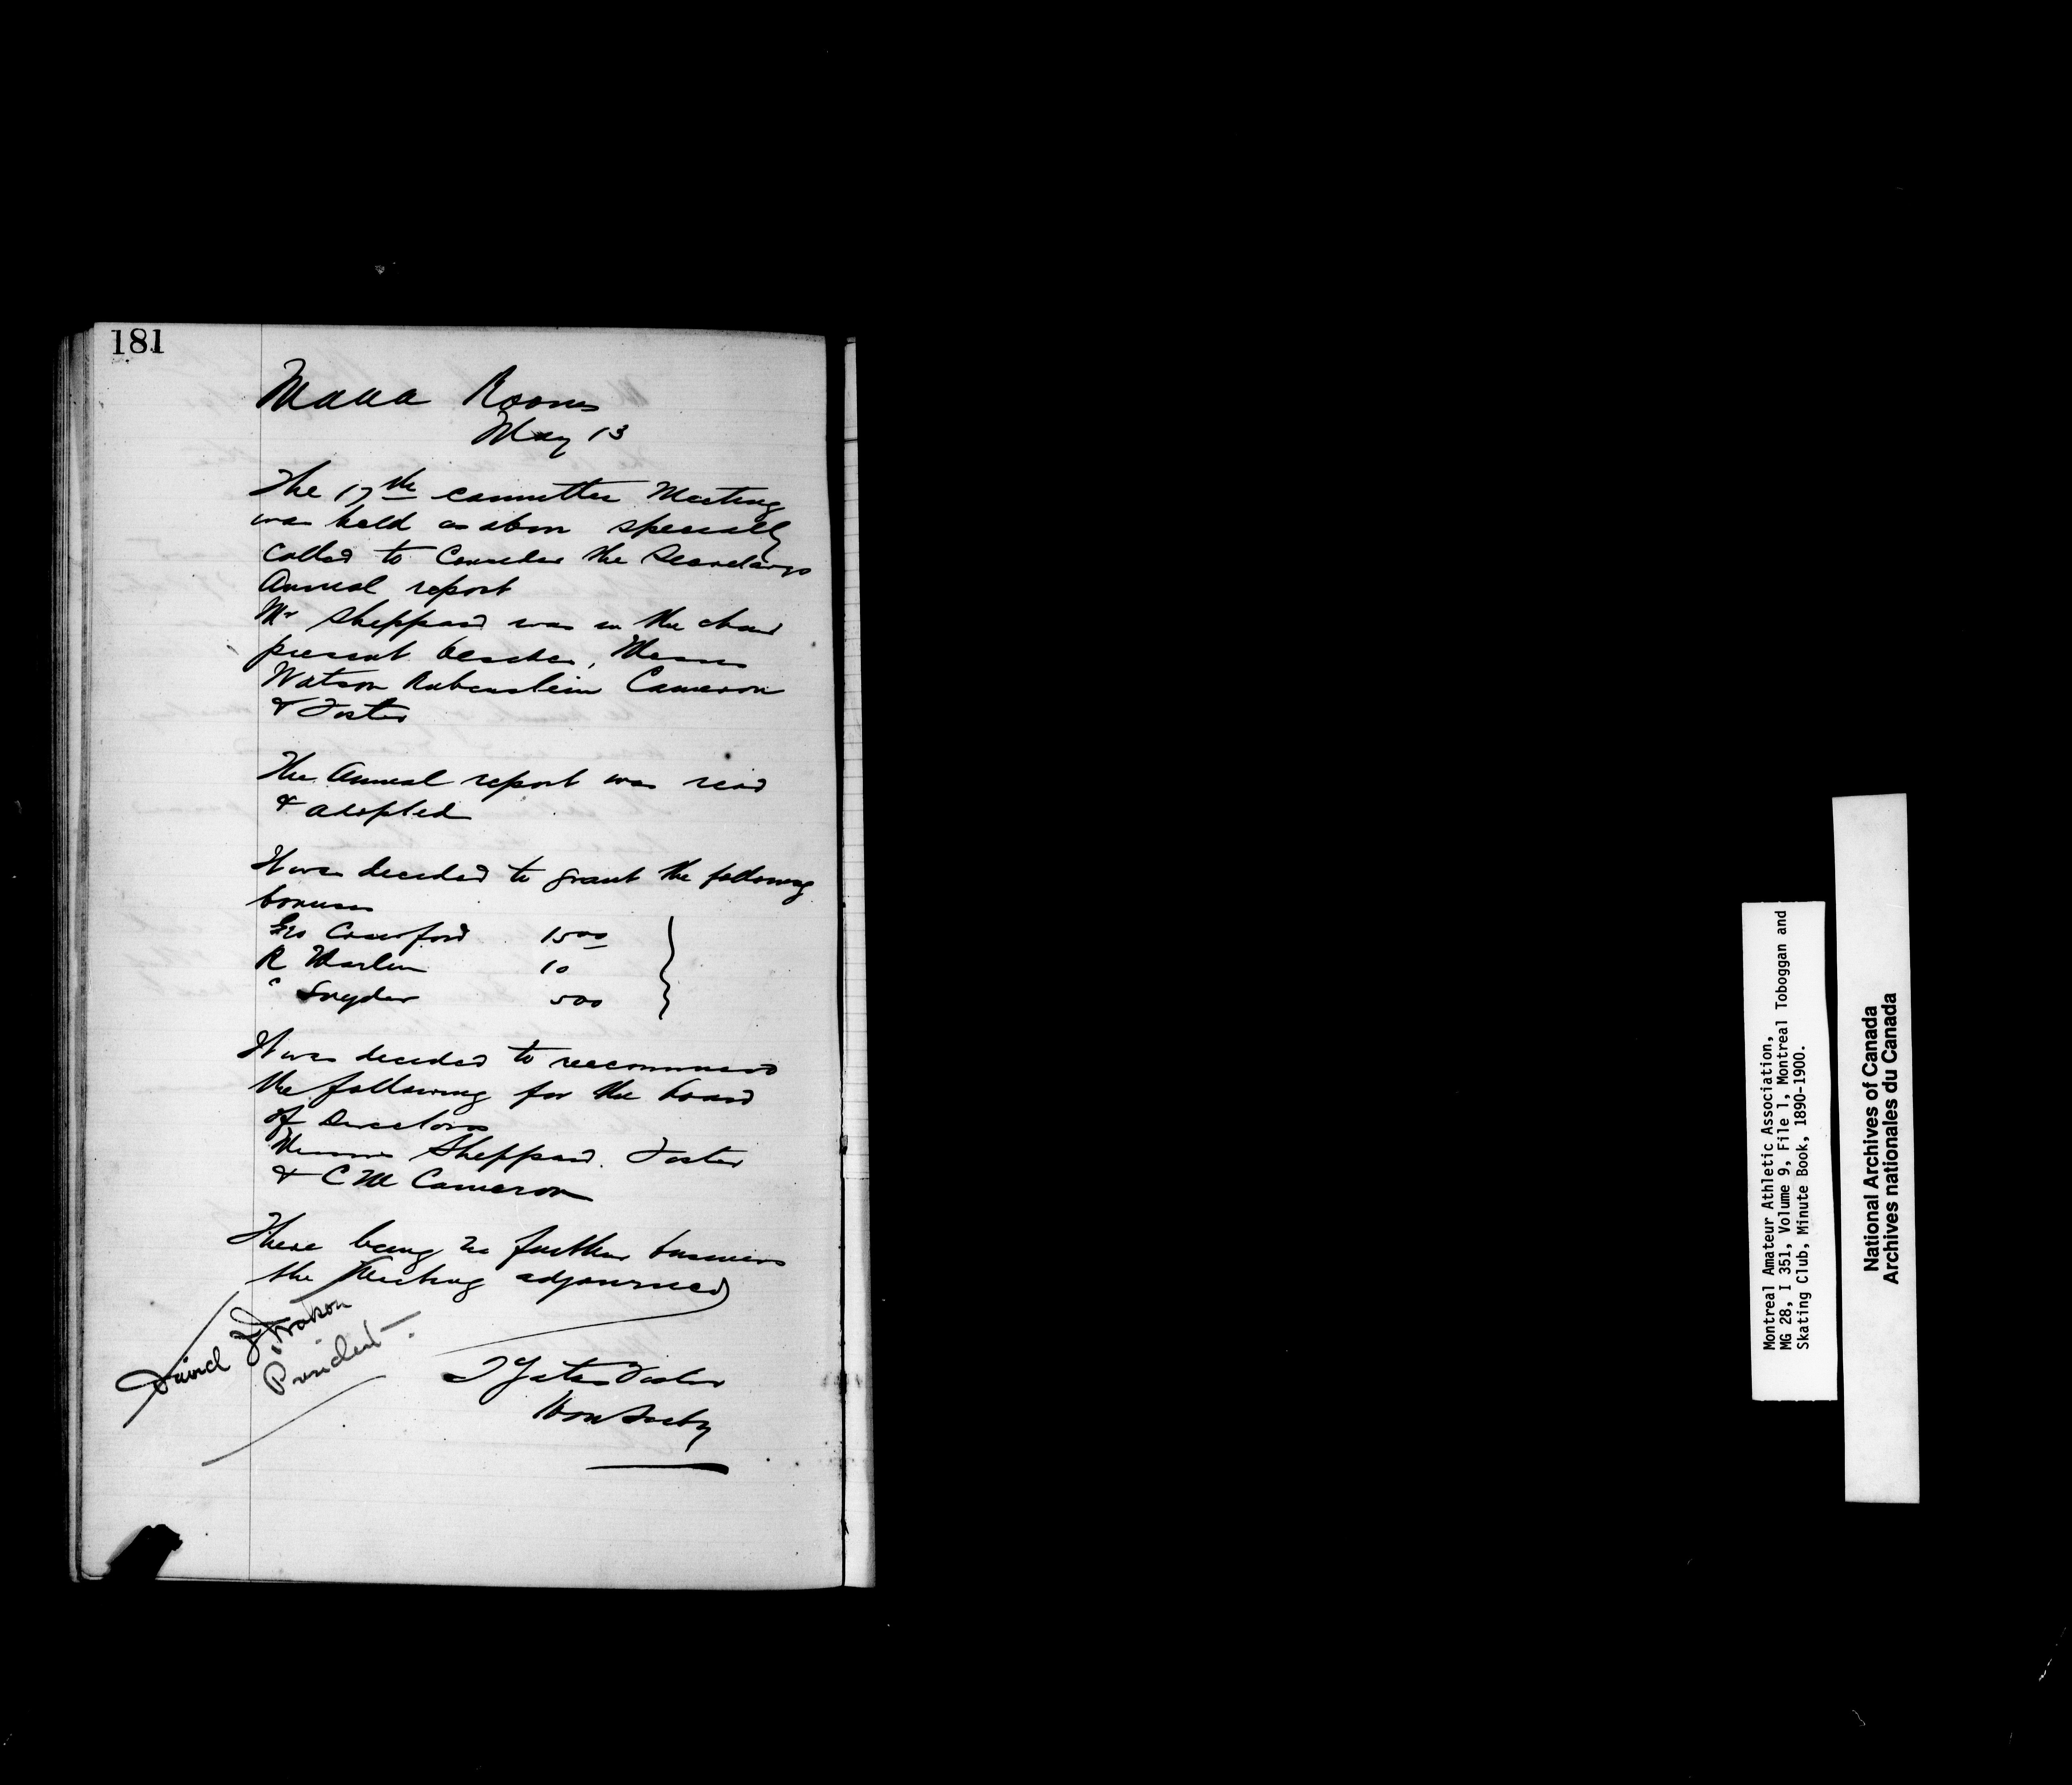 181
MAAA Rooms
May 13
The 17th committee Meeting
was held as above specially
called to Consider the Secretarys
Annual report
Mr Sheppard was in the chair
present besides, Messrs
Watson Rubenstein Cameron
& Foster
The Annual report was read
& adopted
It was decided to grant the following
bonuses
Geo Crawford 1500
R 10
" Snyder 500
It was decided to recommend
the following for the board
of Directors
Messrs Sheppard. Foster
& C M Cameron
There being no further business
the Meeting adjourned
David Watson
President
Yates Foster
Hon Secty
Montreal Amateur Athletic Association,
MG 28, I 351, Volume 9, File 1, Montreal Toboggan and
Skating Club, Minute Book, 1890-1900.
National Archives of Canada
Archives nationales du Canada